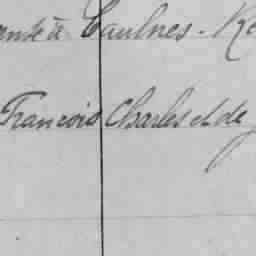 à Caulnes.
François Charles et de